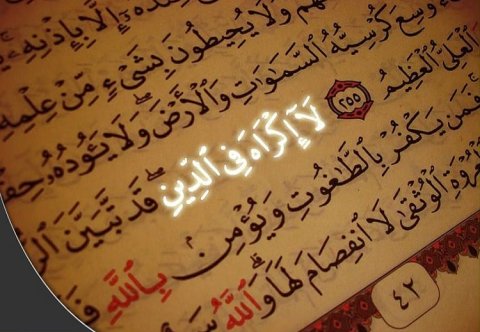 إِلَّا بِإِذْنِهِۦ
وَلَا يُحِيطُونَ بِشَىْءٍ مِّنْ عِلْمِهِ
وَسِعَ كُرْسِيُّهُ ٱلسَّمَٰوَٰتِ وَٱلْأَرْضَ ۖ وَلَا يَـُٔودُهُۥ حِفْ
ٱلْعَلِىُّ ٱلْعَظِيمُ ٢٥٥ لَآ إِكْرَاهَ فِى ٱلدِّينِ ۖ قَد تَّبَيَّنَ ٱلرُّ
فَمَن يَكْفُرْ بِٱلطَّٰغُوتِ وَيُؤْمِنۢ بِٱللَّهِ فَ
عُرْوَةِ ٱلْوُثْقَىٰ لَا ٱنفِصَامَ لَهَا ۗ وَٱللَّهُ سَ
٤٢